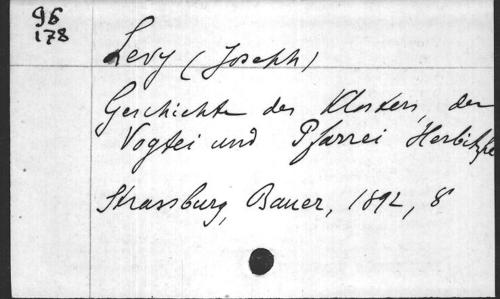 96
178
Levy (Joseph)
Geschichte des Klosters, der
Vogtei und Pfarrei Herbitzhe
Strassburg, Bauer, 1892, 8